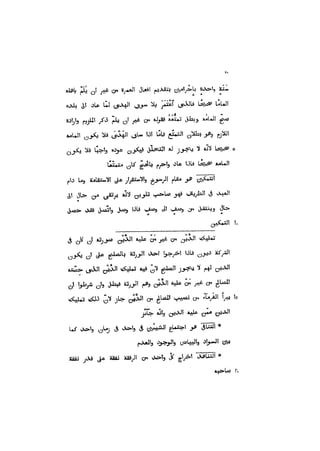 ٧٠
سنة واحدة باحرامين بتقديم افعال العمرة من غير ان يُلِمّ باهله
المامًا صحيحًا فالذى اعتمر بلا سوق الهدى لمّا عاد الى بلده
صحّ المامُه وبطل تمتّعه فقوله من غير ان يلمّ ذكر الملزوم وارادة
اللازم وهو بطلان التمتّع فامّا اذا ساق الهَدْىَ فلا يكون المامه
٥ صحيحًا لأنّه لا يجوز له التحلّل فيكون عوده واجبًا فلا يكون
المامه صحيحًا فاذا عاد واحرم بالحجّ كان متمتّعًا
التمكين هو مقام الرسوخ والاستقرار على الاستقامة وما دام
العبد فى الطريق فهو صاحب تلوين لأنّه يرتقى من حال الى
حال وينتقل من وصف الى وصف فاذا وصل واتّصل فقد حصل
١٠ التمكين
تمليك الدَّيْن من غير مَنْ عليه الدَّيْن صورته ان كان فى
التركة ديون فاذا اخرجوا احد الورثة بالصلح على ان يكون
الدين لهم لا يجوز الصلح لأنّ فيه تمليك الدَّيْن الذى حصّته
للمصالح من غير مَنْ عليه الدَّيْن وهم الورثة فبطل وان شرطوا ان
١٥ يبرأ الغرماء من نصيب المصالح من الدَّيْن جاز لأنّ ذلك تمليك
الدين ممّن عليه الدين وانّه جائز
* التنافى هو اجتماع الشيئين فى واحد فى زمان واحد كما
بين السواد والبياض والوجود والعدم
* التناهد اخراج كلّ واحد من الرفقة نفقة على قدر نفقة
٢٠ صاحبه